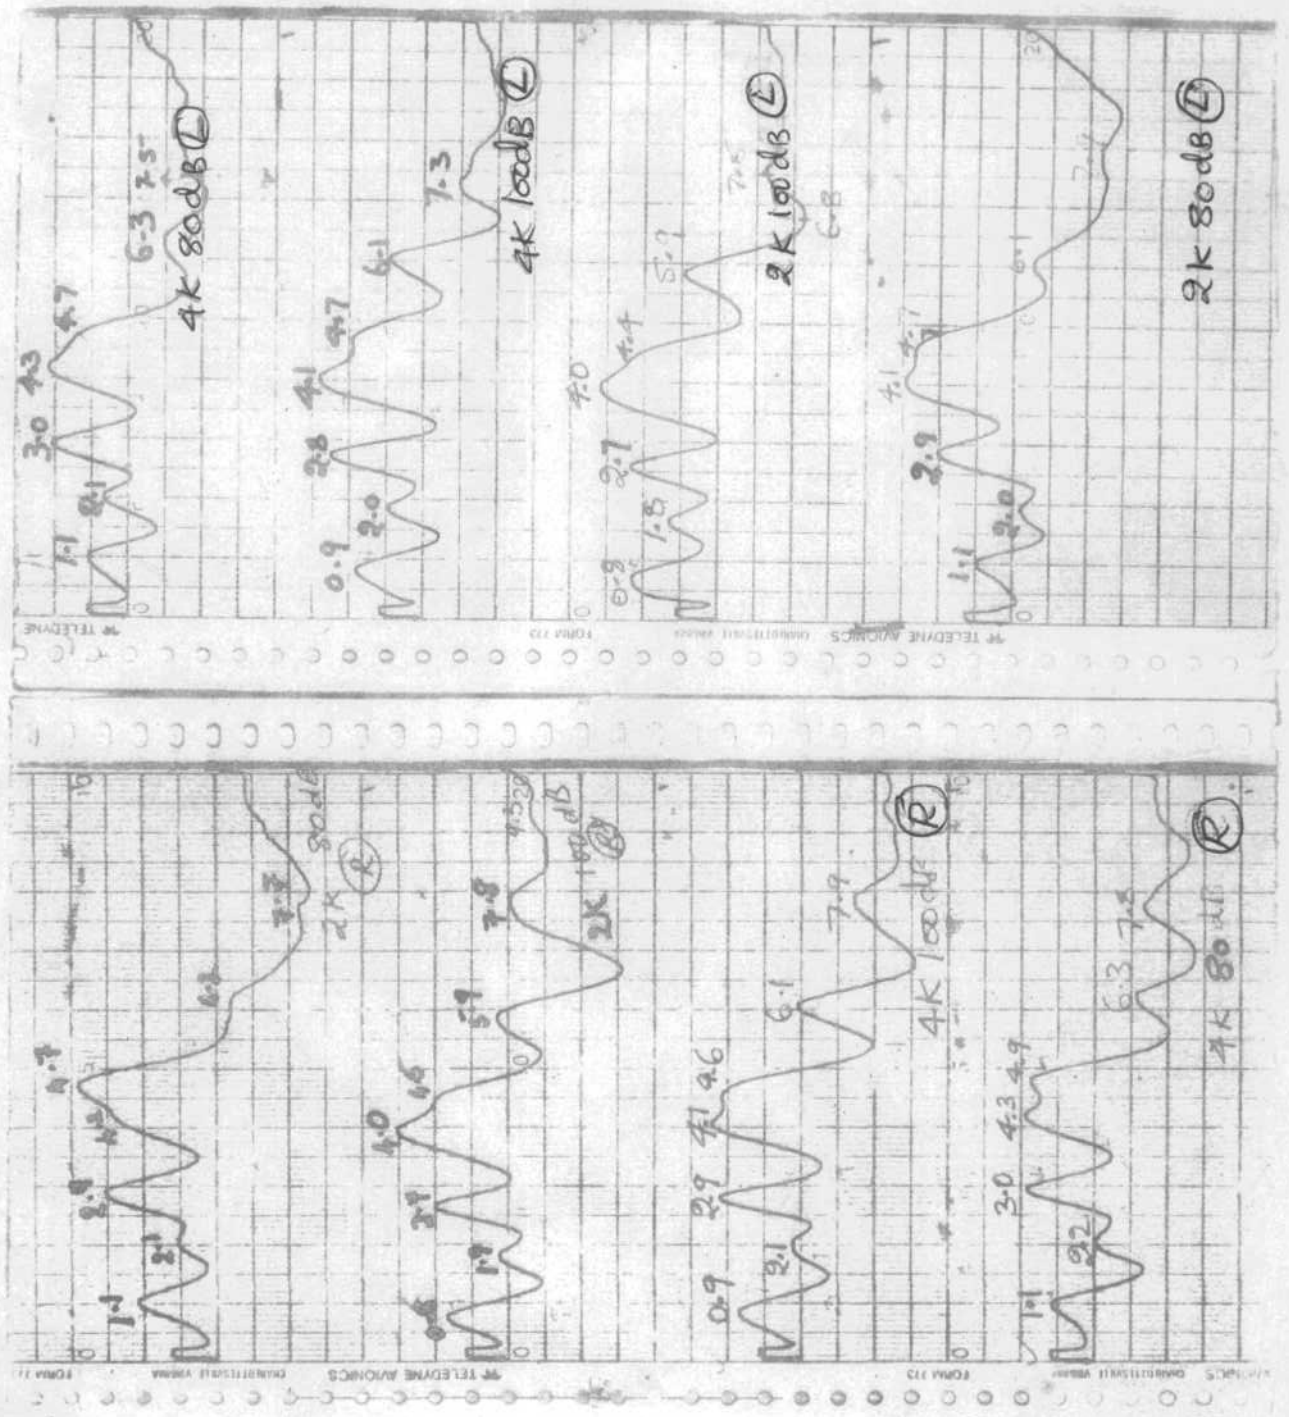 20
1.1 2.1 3.0 4.3 4.7 6.3 7.5
4K 80dB L
0
0.9 2.0 2.8 4.1 4.7 6.1 7.3
4K 100dB L
0.8 1.8 2.7 4.0 4.4 5.9 6.8 7.8
2K 100dB L
0
20
1.1 2.0 2.9 4.1 4.7 6.1 7.4
2K 80dB L
0
TELEDYNE
FORM 773
CHARLOTTESVILLE VIRGINIA
TELEDYNE AVIONICS
10
1.1 2.1 2.9 4.2 4.7 6.2 7.3
2K 80dB R
0
0.8 1.8 2.7 4.0 4.6 5.9 7.8 9.3
20
2K 100dB R
0
0.9 2.1 2.9 4.1 4.6 6.1 7.9
4K 100dB R
10
0
1.1 2.2 3.0 4.3 4.9 6.3 7.8
4K 80dB R
FORM 773
CHARLOTTESVILLE VIRGINIA
TELEDYNE AVIONICS
FORM 773
CHARLOTTESVILLE VIRGINIA